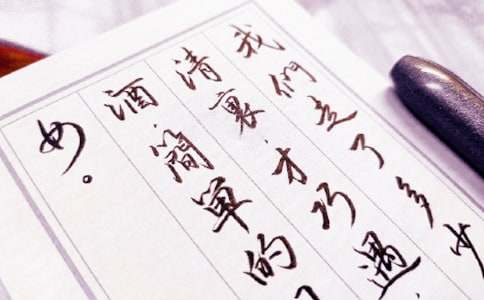 我們走了多少
清裏，才巧遇
酒，簡單的
如。